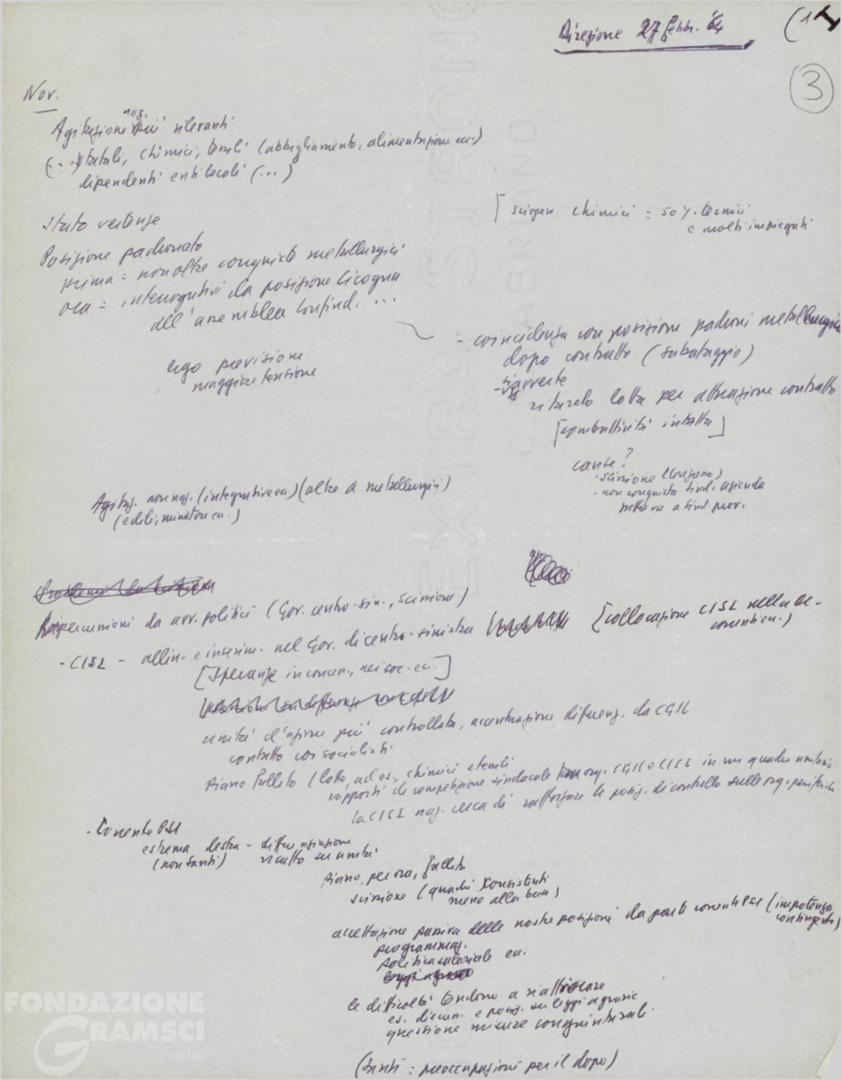 Direzione 27 febbr. '64
(1
3
Nov.
naz.
Agitazione più rilevanti
(- -) statali, chimici, tessili (abbigliamento, alimentazione ecc.)
dipendenti enti locali (...)
[sciopero chimici = 50% tecnici
e molti impiegati
Stato vertenze
Posizione padronato
prima = non oltre conquiste metallurgici
ora = interrogativi da posizione Cicogna
all'assemblea Confind. ...
ergo previsione
maggiore tensione
= coincidenza con posizione padroni metallurgici
dopo contratto (sabotaggio)
ritardo lotta per attuazione contratto
[combattività intatta]
cause?
- scissione
- non conquista sind. azienda
Agitaz. non naz. (integrative ecc.) (oltre a metallurgici)
(edili, minatori ecc.)
Ripercussioni da avv. politici (Gov. centro-sin., scissione)
- CISL - allin. e inserim. nel Gov. di centro-sinistra
[collocazione CISL nella DC -
[Speranze in concess. nei soc. ecc.]
unità d'azione più controllata, accentuazione differenz. da CGIL
contatto coi socialisti
Piano fallito (lotte, ad es., chimici e tessili
rapporti di competizione sindacale tra org. CGIL e CISL in un quadro unitario
la CISL naz. cerca di rafforzare le posiz. di controllo sulle org. periferiche
- Corrente PSI
estrema destra - differenziazione
(non Santi) ricatto su unità
Piano, per ora, fallito
scissione (quadri consistenti
meno alla base)
accettazione passiva delle nostre posizioni da parte corrente PSI (impotenza
contingente)
programmaz.
politica salariale ecc.
le difficoltà tendono a riaffiorare
es. discuss. e posiz. su leggi agrarie
questione misure congiunturali.
(Santi: preoccupazioni per il dopo)
FONDAZIONE
GRAMSCI
onlus